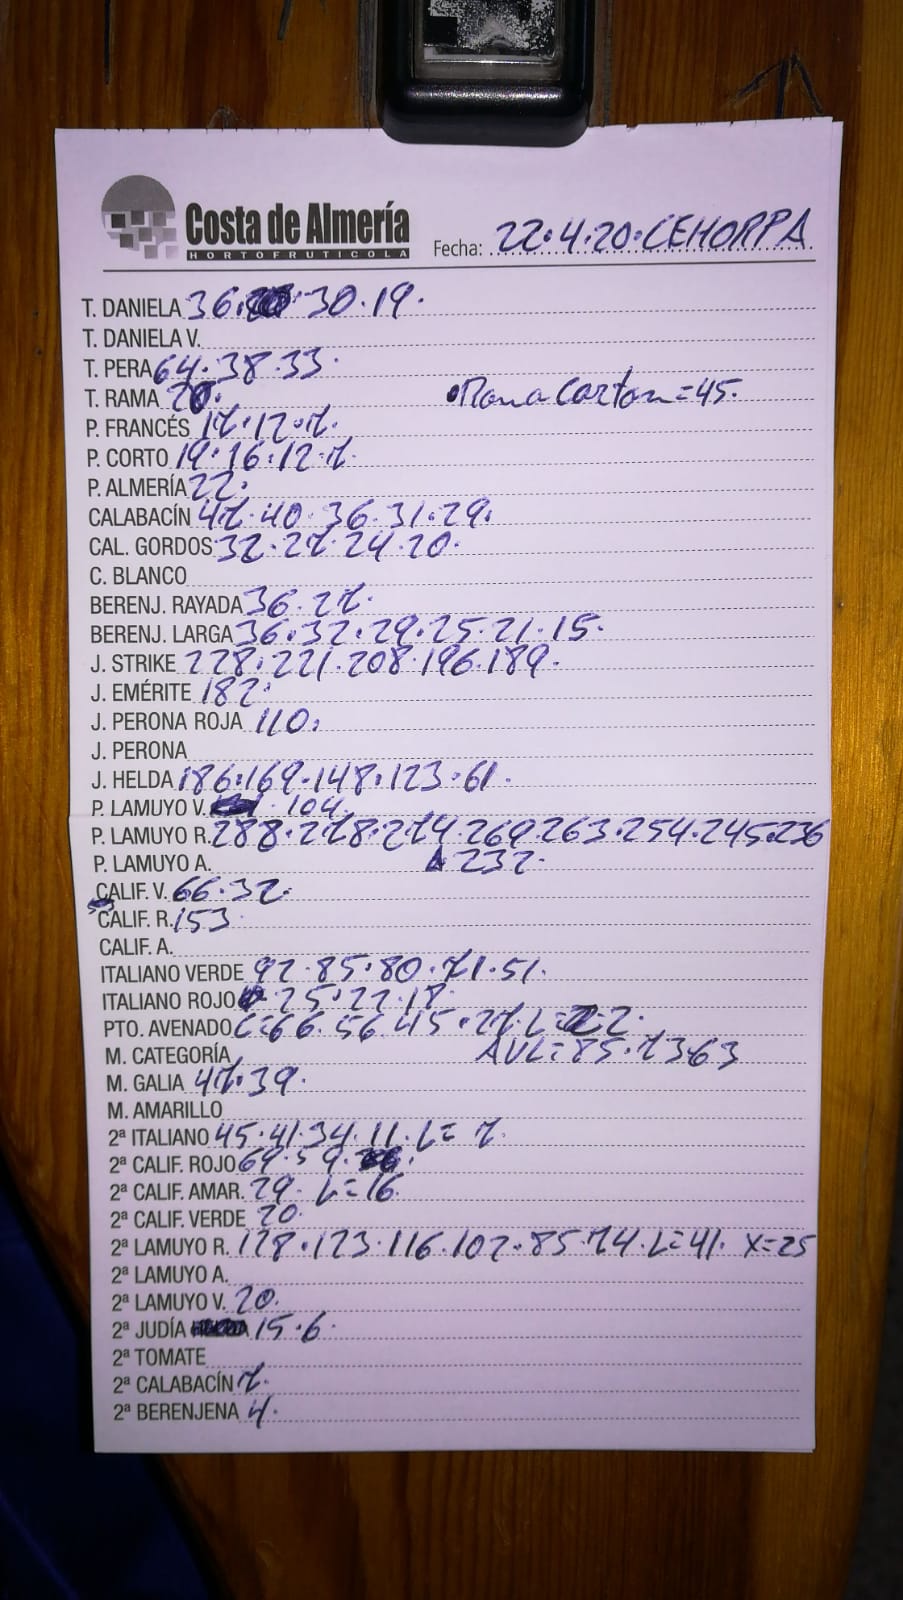 Costa de Almería
HORTOFRUTICOLA
Fecha: 22.4.20.CEHORPA
T. DANIELA 36. 30.19.
T. DANIELA V.
T. PERA 64.38.33.
T. RAMA 20. Rama Carton=45.
P. FRANCÉS 17.12.7.
P. CORTO 19.16.12.7.
P. ALMERÍA 22.
CALABACÍN 47.40.36.31.29.
CAL. GORDOS 32.27.24.20.
C. BLANCO
BERENJ. RAYADA 36.27.
BERENJ. LARGA 36.32.29.25.21.15.
J. STRIKE 228.221.208.196.189.
J. EMÉRITE 182.
J. PERONA ROJA 110.
J. PERONA
J. HELDA 186.169.148.123.61.
P. LAMUYO V. 104.
P. LAMUYO R. 288.278.274.269.263.254.245.236
P. LAMUYO A. 232.
CALIF. V. 66.32.
CALIF. R. 153
CALIF. A.
ITALIANO VERDE 92.85.80.71.51.
ITALIANO ROJO 25.22.18.
PTO. AVENADO C=66.56.45.27.L=22.
M. CATEGORÍA AVL=85.73.63
M. GALIA 47.39.
M. AMARILLO
2ª ITALIANO 45.41.34.11.L=7.
2ª CALIF. ROJO 69.59.
2ª CALIF. AMAR. 29. L=16.
2ª CALIF. VERDE 20.
2ª LAMUYO R. 128.123.116.102.85.74.L=41. X=25
2ª LAMUYO A.
2ª LAMUYO V. 20.
2ª JUDÍA 15.6.
2ª TOMATE
2ª CALABACÍN 7.
2ª BERENJENA 4.